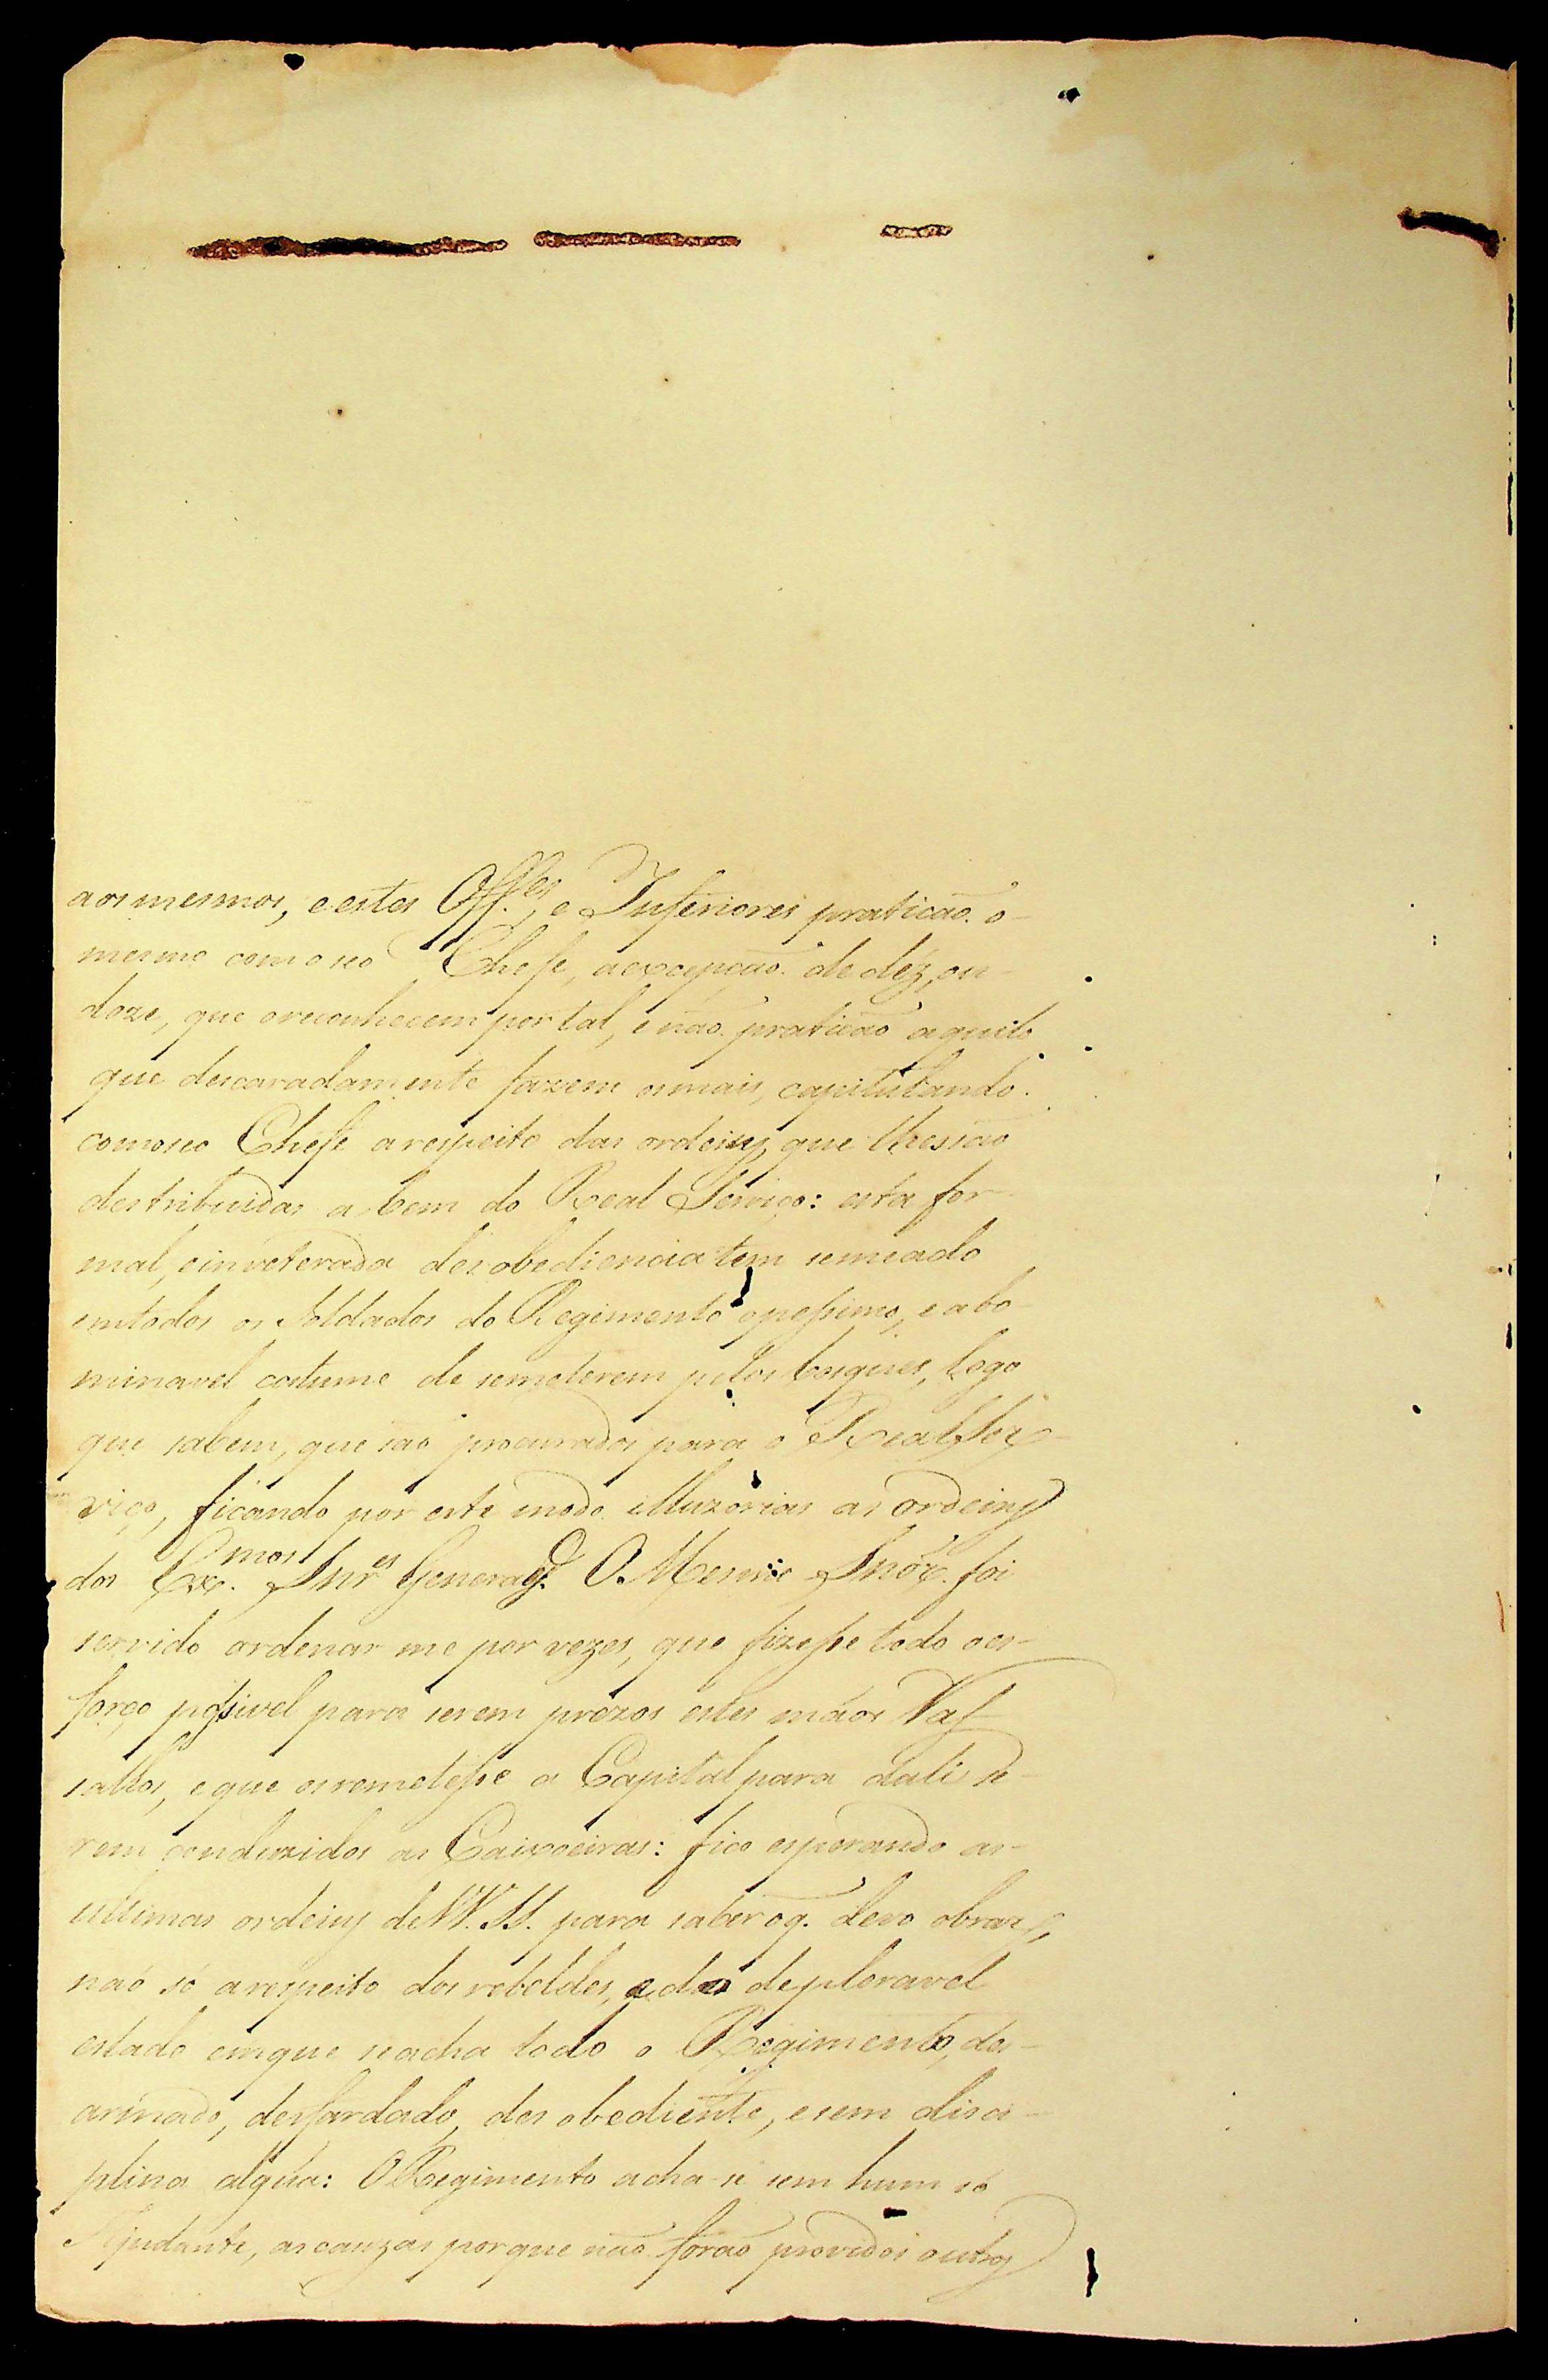 aos mesmos, e estes Off.es, e Inferiores praticaõ o
mesmo com o seo Chefe, a excepçaõ de déz, ou
doze, que o reconhecem por tal, e naõ praticaõ aquilo
que descaradamente fazem os mais, capitulando
com o seo Chefe a respeito das ordeins, que lhes saõ
destribuidas a bem do Real Serviço: esta for
mal, e inveterada desobediencia tem semeado
em todos os Soldados do Regimento o pessimo, e abo-
minavel costume de se meterem pelos bosques, logo
que sabem, que saõ procurados para o Real Ser-
viço, ficando por este modo illuzorias as ordeins
dos Ex.mos Snr.es Generaes. O Mesmo Snõr. foi
servido ordenar me por vezes, que fizesse todo o es-
forço possivel para serem prezos estes máos Vas-
sallos, e que os remetesse a Capital para dali se-
rem conduzidos as Caixoeiras: fico esperando as-
ultimas ordeins de VV. SS. para saber o q. devo obrar,
naõ só a respeito dos rebeldes, e do deploravel
estado em que se acha todo o Regimento, des-
armado, desfardado, desobediente, e sem disci-
plina algúa: O Regimento acha-se sem hum só
Ajudante, as cauzas porque naõ foraõ providos outros